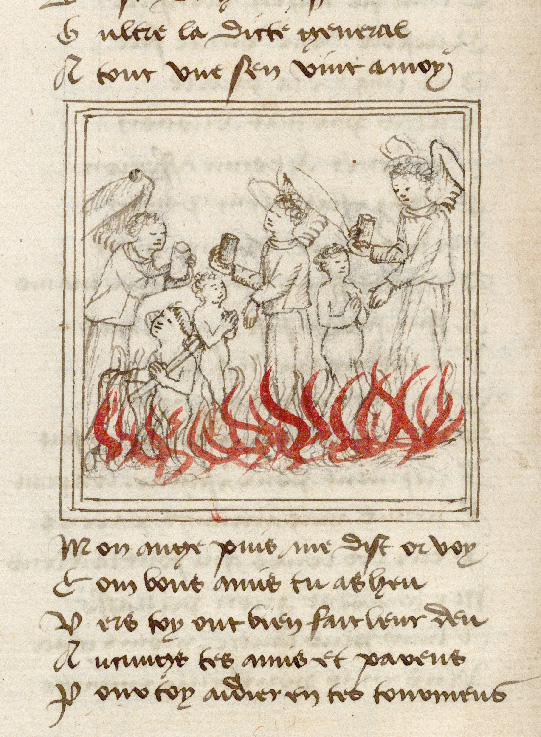 G ultre la dicte general
A tout vne sen vint a moy
M on ange puis me dist or voy
C om bons amis tu as heu
V ers toy ont bien fait leur deu
A ucungs tes amis et parens
P our toy aidier en tes tourmens